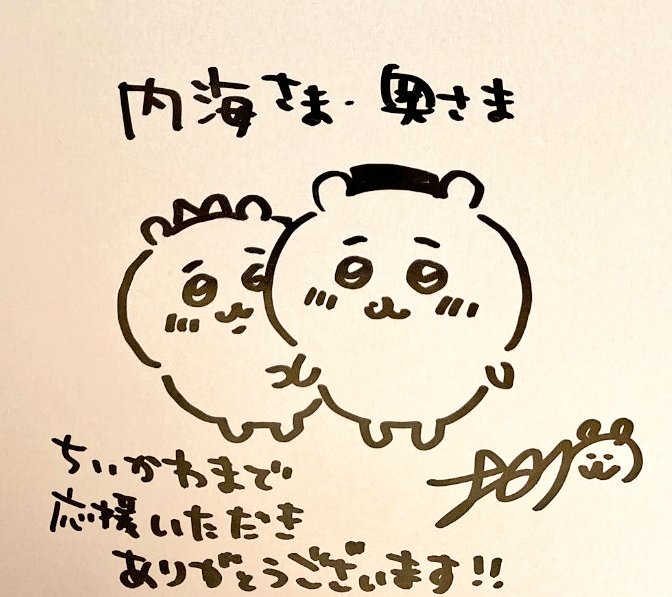 内海さま・奥さま
ちいかわまで
応援いただき
ありがとうございます!!